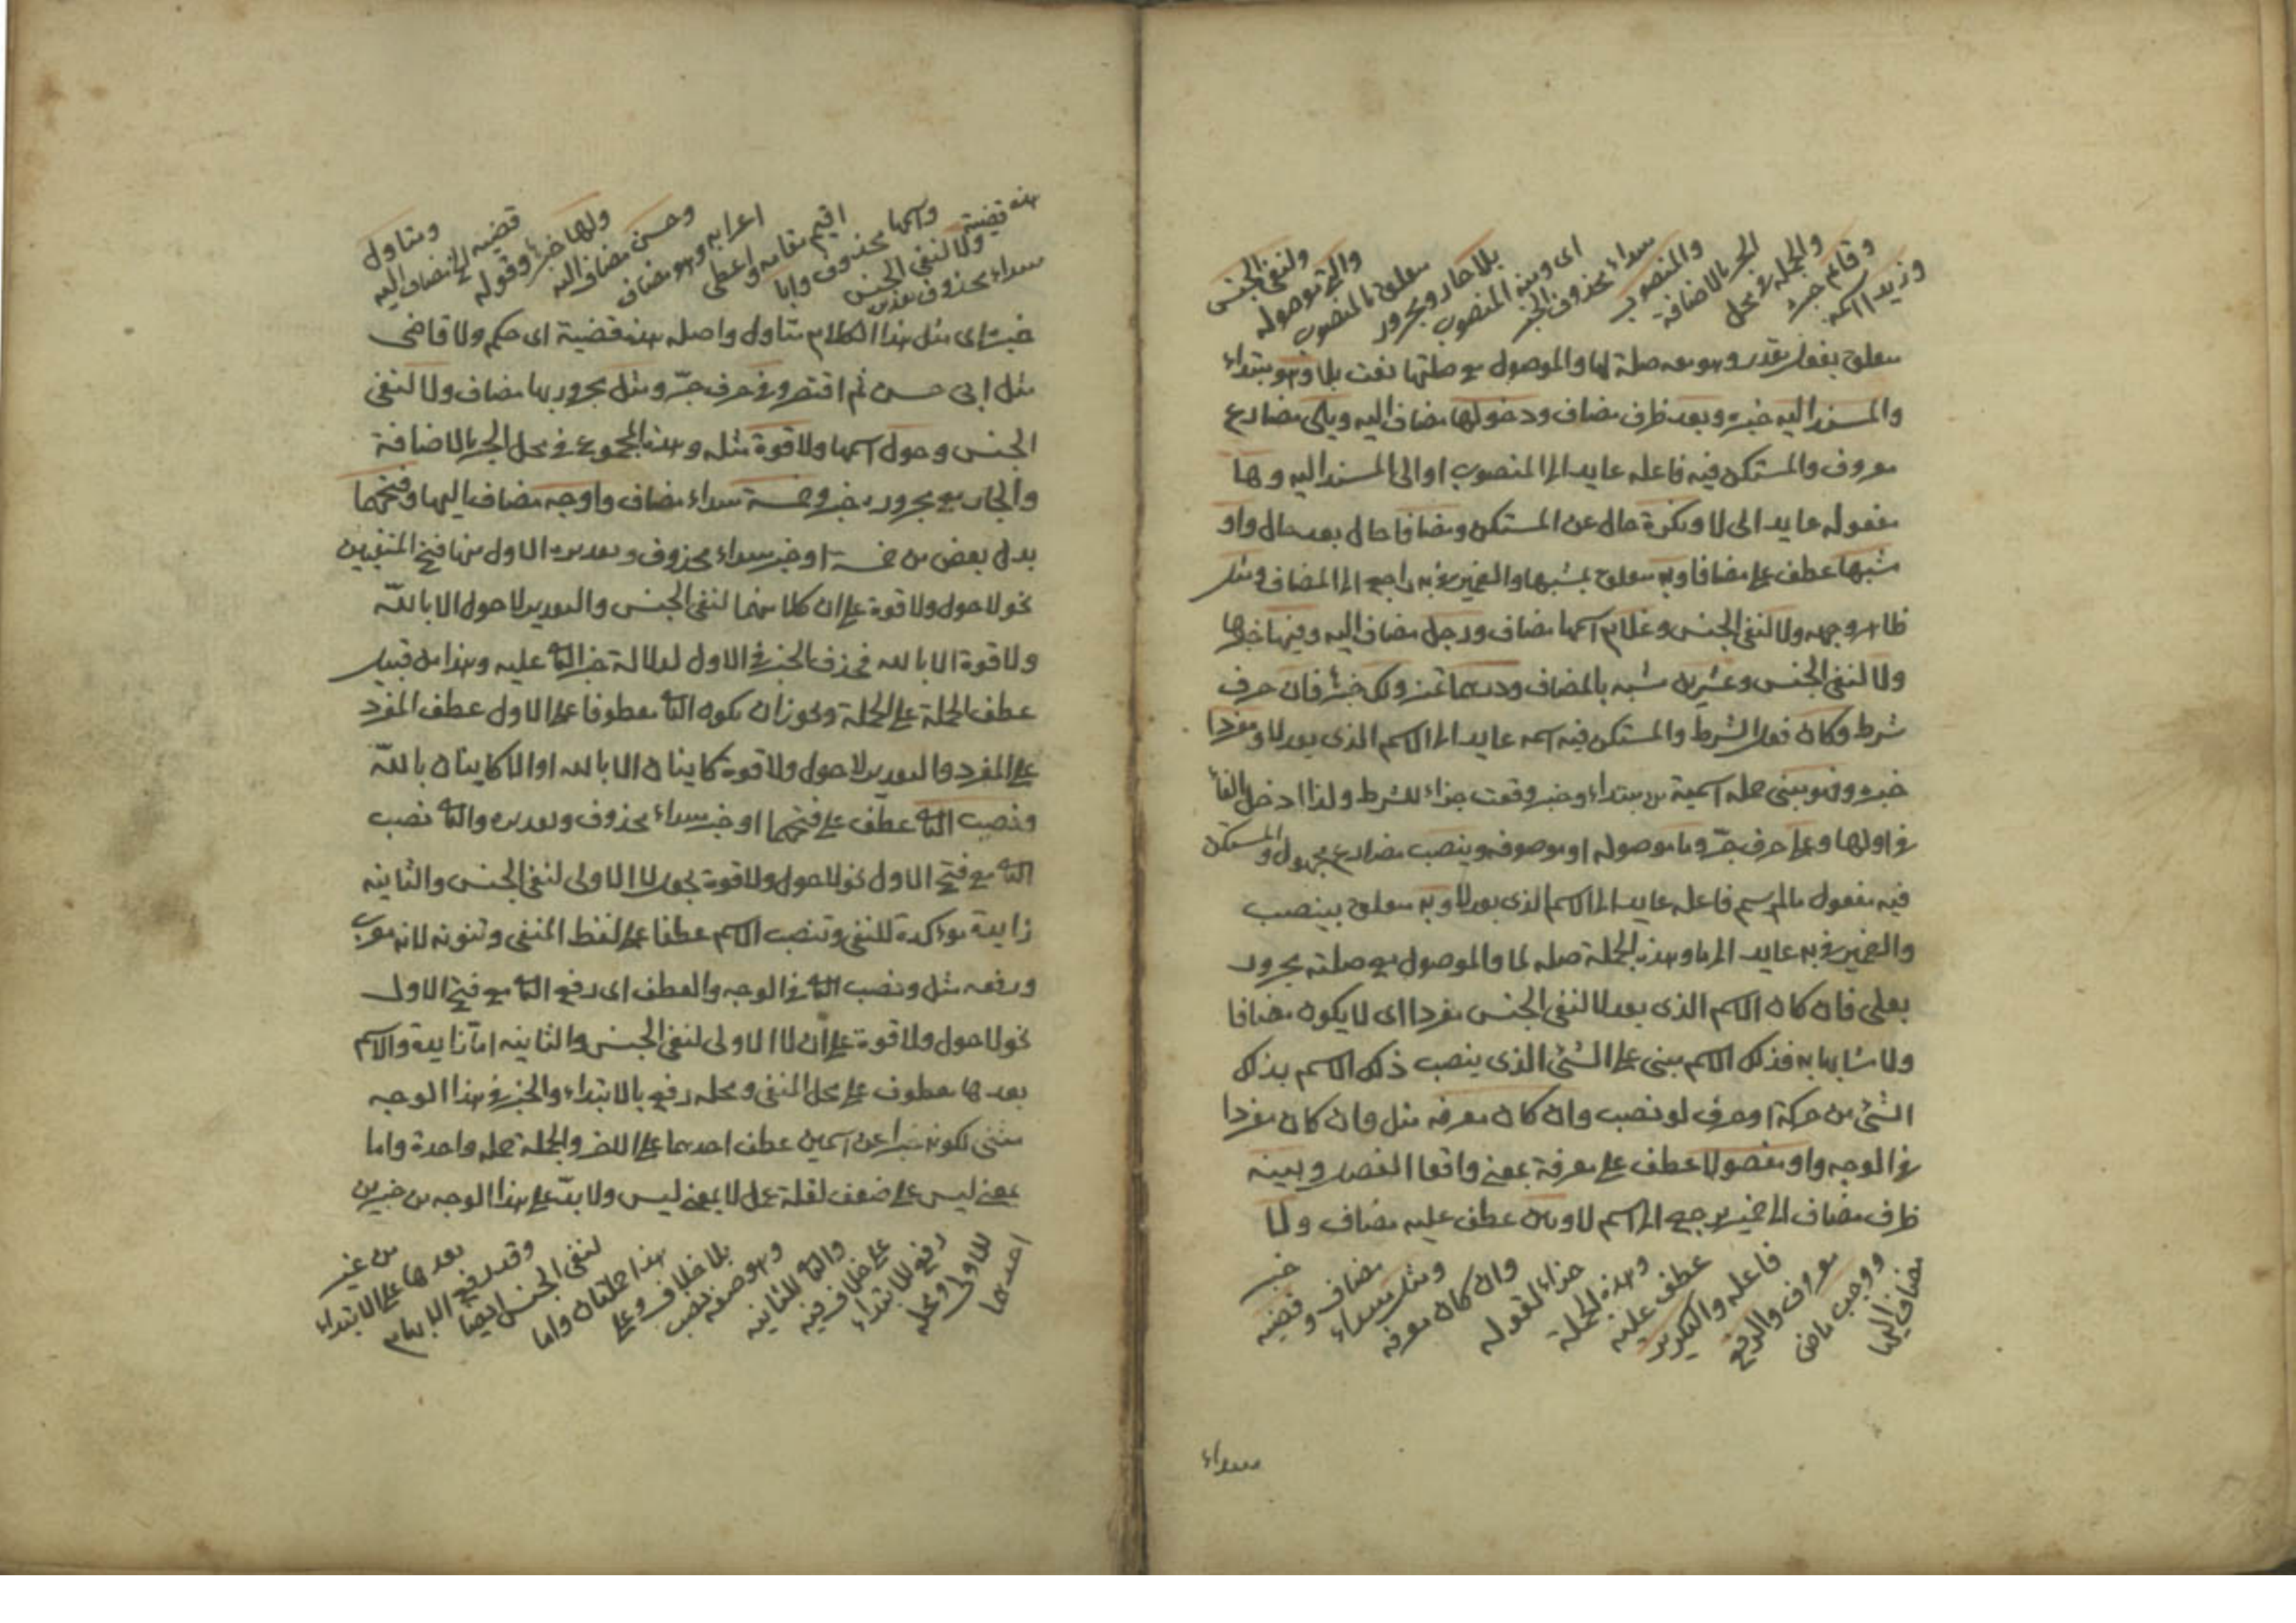 وزيد اسمه
وقائم خبره
والجملة في محل
الجر بالاضافة
والمنصوب
مبتداء محذوف الخبر
اى وهذه المنصوب
بلا جار ومجرور
متعلق بالمنصوب
والتى موصوله
ولنفى الجنس
متعلق بفعل مقدر وهو معه صلة لها والموصول مع صلتها نعت بلا وهو مبتداء
والمسند اليه خبره وبعد ظرف مضاف ودخولها مضاف اليه ويلى مضارع
معروف والمستكن فيه فاعله عايد الى المنصوب او الى المسند اليه وها
مفعوله عايد الى لا ونكرة حال عن المستكن ومضافا حال بعد حال واو
مشبها عطف على مضافا وبه متعلق بمشبها والضمير في به راجع الى المضاف ومثل
ظاهر وجهه ولا لنفى الجنس وغلام اسمها مضاف ورجل مضاف اليه وفيها خبرها
ولا لنفى الجنس وعشرين مشبه بالمضاف ودرهما تميز ولك خبره فان حرف
شرط وكان فعل الشرط والمستكن فيه اسمه عايد الى الاسم الذى بعد لا ومفردا
خبره وفهو مبنى جمله اسمية من مبتداء وخبر وقعت جزاء للشرط ولذا ادخل الفاء
في اولها وعلى حرف جرّ وما موصوله او موصوفه وينصب مضارع مجهول والمستكن
فيه مفعول مالم يسم فاعله عايد الى الاسم الذى بعد لا وبه متعلق بينصب
والضمير في به عايد الى ما وهذه الجملة صله لما والموصول مع صلته مجرور
بعلى فان كان الاسم الذى بعد لا لنفى الجنس مفردا اى لا يكون مضافا
ولا مشابها به فذلك الاسم مبنى على الشئ الذى ينصب ذلك الاسم بذلك
الشئ من حركة او حرف لو نصب وان كان معرفه مثل وان كان مفردا
في الوجه واو مفصولا عطف على معرفة بمعنى واقعا الفصل وبينه
ظرف مضاف الى ضمير يرجع الى اسم لا وبين عطف عليه مضاف ولا
مضاف اليها
ووجب ماض
معروف والرفع
فاعله والتكرير
عطف عليه
وهذه الجملة
جزاء لقوله
وان كان معرفه
ومثل مبتداء
مضاف وقضيه
خبر
مبتداء
هذه قضية
مبتداء محذوف تقديره
ولا لنفى الجنس
واسمها محذوف وابا
اقيم مقامه واعطى
اعرابه وهو مضاف
وحسن مضاف اليه
ولها خبره وقوله
قضيه الخ مضاف اليه
ومتاول
خبره اى مثل هذا الكلام متاول واصله هذه قضية اى حكم ولا قاضى
مثل ابى حسن ثم اقتصر وفي حرف جرّ ومثل مجرور بها مضاف ولا لنفى
الجنس وحول اسمها ولا قوة مثله وهذا المجموع في محل الجر بالاضافة
والجار مع مجروره خبر وخمسة مبتداء مضاف واوجه مضاف اليها وفتحهما
بدل بعض من خمسة او خبر مبتداء محذوف وتقديره الاول منها فتح المنفيين
نحو لا حول ولا قوة على ان كلا منهما لنفى الجنس والتقدير لا حول الا بالله
ولا قوة الا بالله فحذف الخبر في الاول لدلالة خبر الثانى عليه وهذا من قبيل
عطف الجملة على الجملة ويجوز ان يكون الثانى معطوفا على الاول عطف المفرد
على المفرد والتقدير لا حول ولا قوة كاينان الا بالله او الا كاينان بالله
ونصب الثانى عطف على فتحهما او خبر مبتداء محذوف وتقديره والثانى نصب
الثانى مع فتح الاول نحو لا حول ولا قوة بجعل لا الاولى لنفى الجنس والثانيه
زايدة مؤكدة للنفى وتنصب الاسم عطفا على لفظ المنفى وتنونه لانه معرب
ورفعه مثل ونصب الثانى في الوجه والعطف اى رفع الثانى مع فتح الاول
نحو لا حول ولا قوة على ان لا الاولى لنفى الجنس والثانيه امّا زايدة والاسم
بعدها معطوف على محل المنفى ومحله رفع بالابتداء والخبر في هذا الوجه
مثنى لكونه خبرا عن اسمين عطف احدهما على الاخر والجملة جمله واحدة واما
بمعنى ليس على ضعف لقلة عمل لا بمعنى ليس ولا بدّ على هذا الوجه من خبرين
احدهما
للاولى ومحله
رفع للابتداء
على خلاف فيه
والثانى للثانيه
وهو صفه نصب
بلا خلاف وعلى
هذا جملتان واما
لنفى الجنس ايضا
وقد رفع الابهام
بعدها على الابتداء
من غير